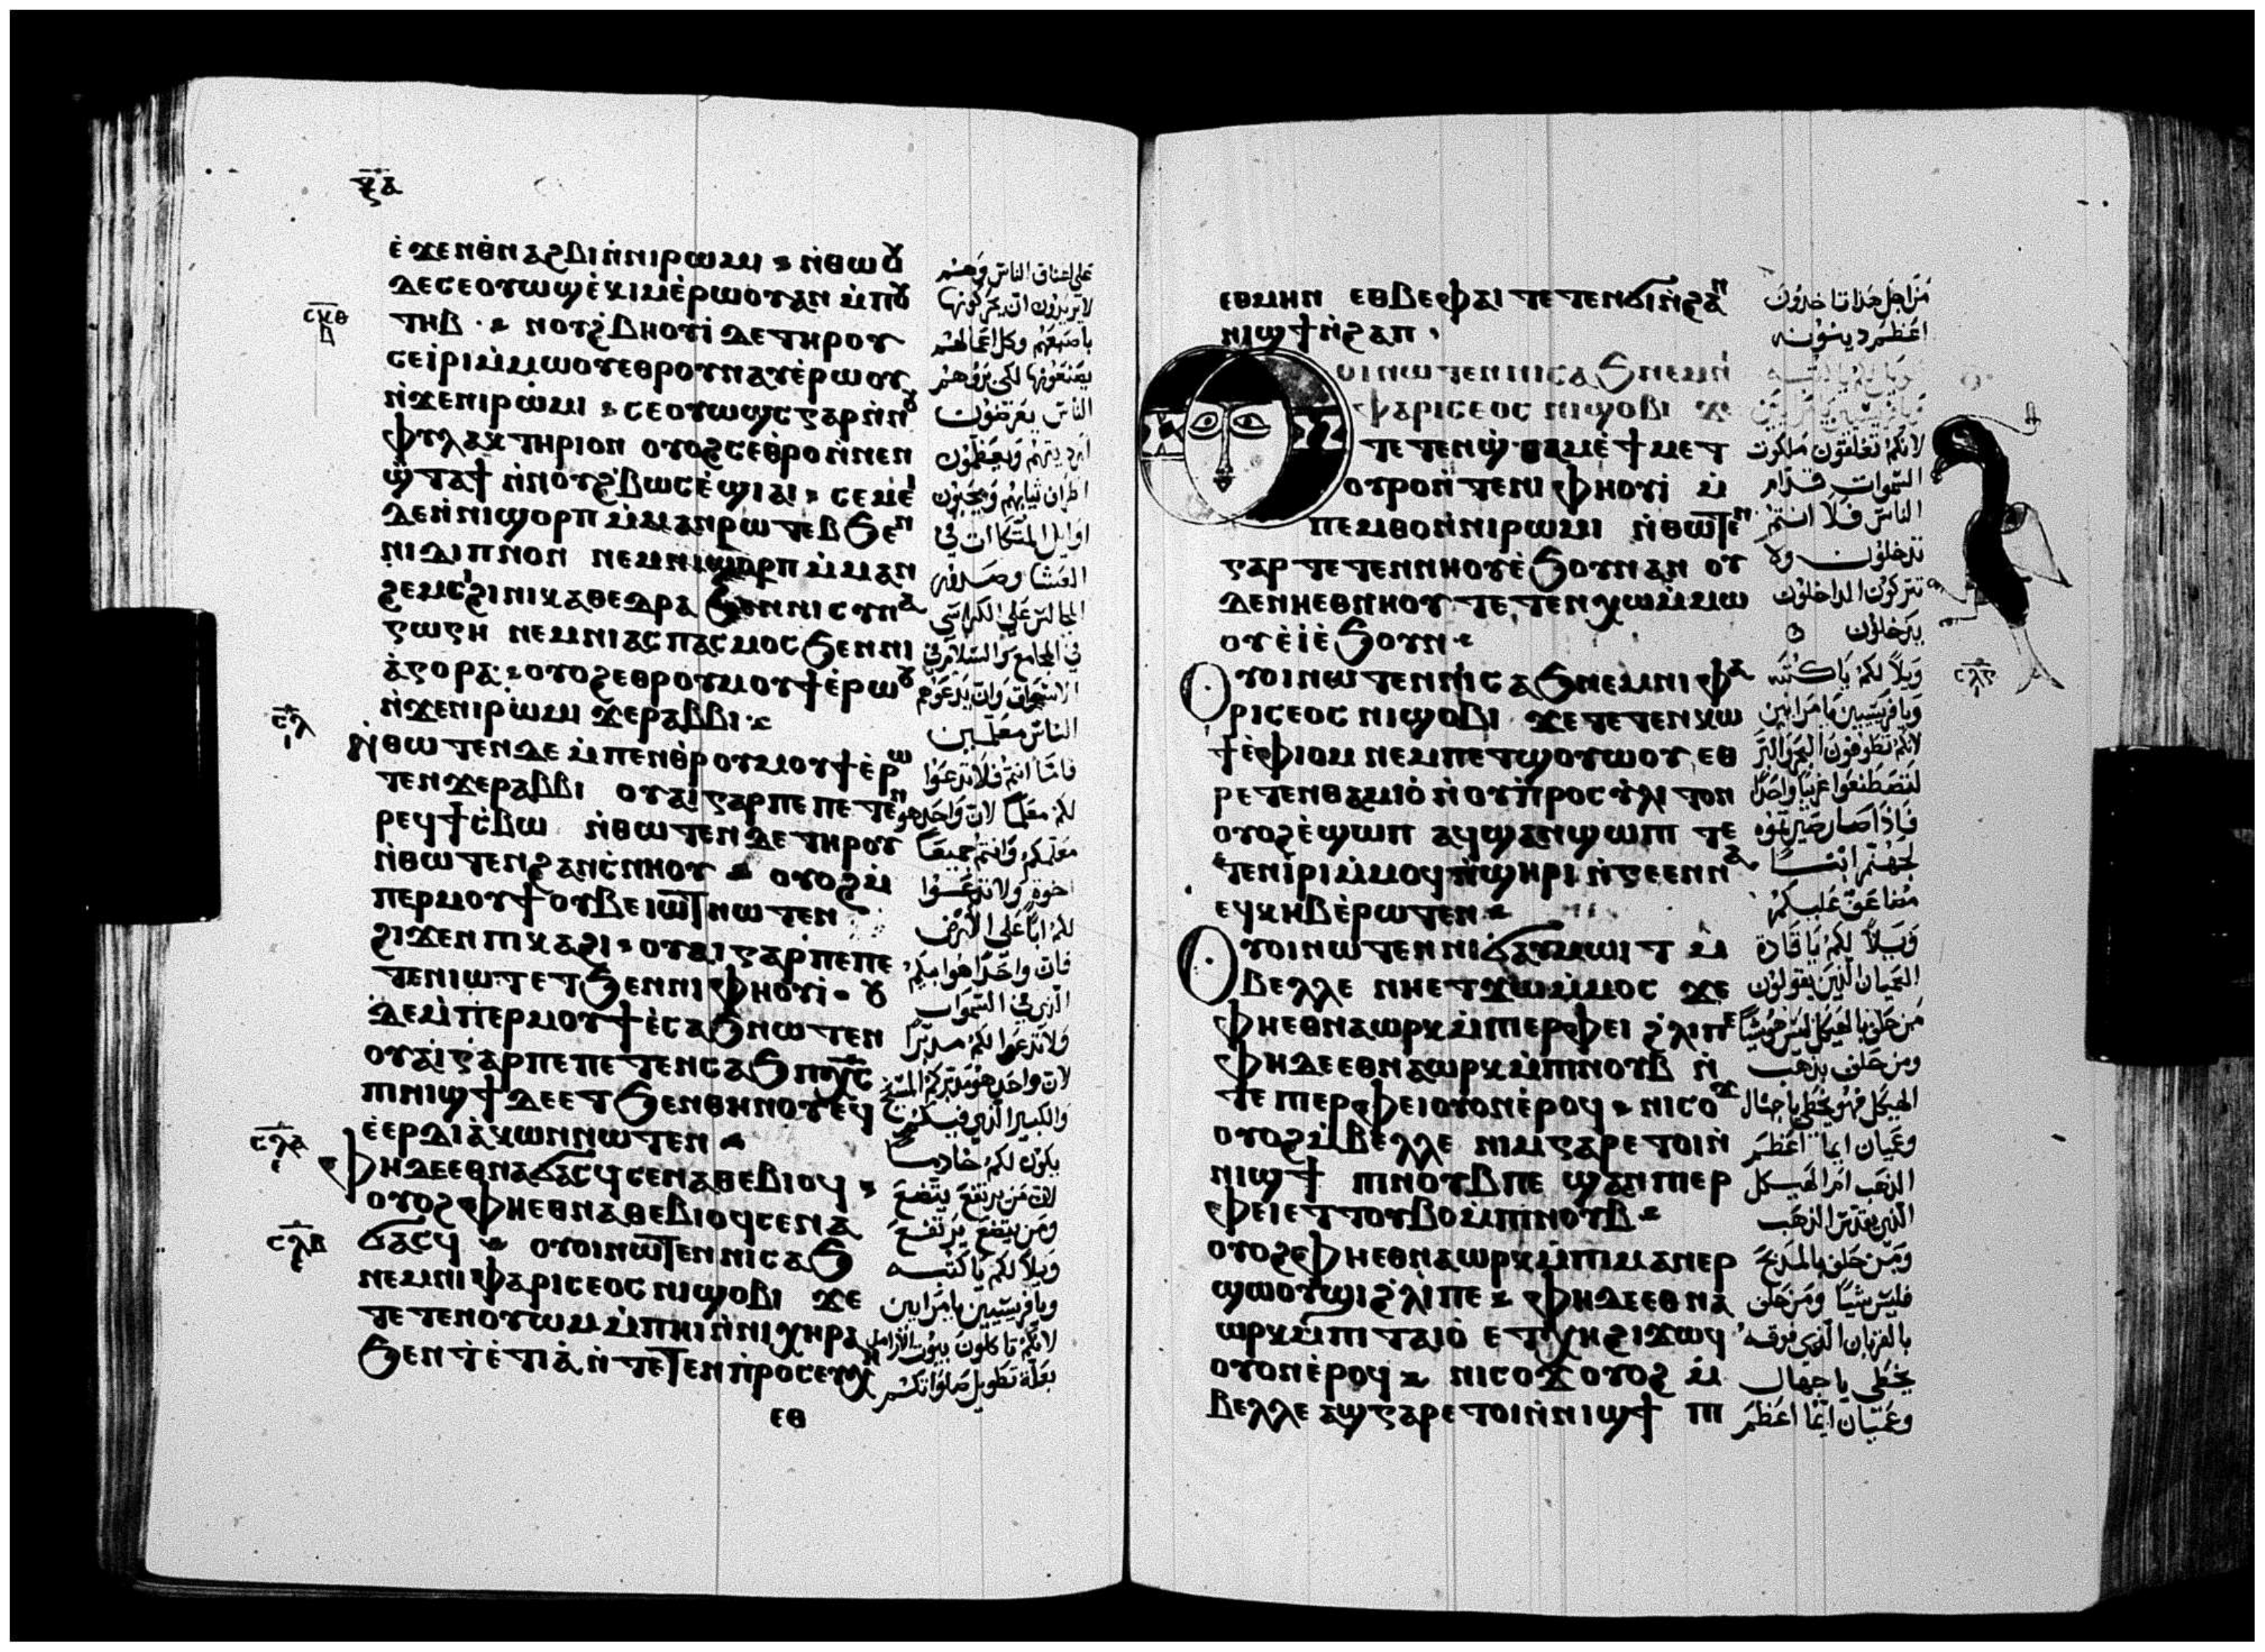 ⲝ̅ⲁ̅
ⲉ̀ϫⲉⲛⲑⲛⲁϩⲃⲓⲛ̀ⲛⲓⲣⲱⲙⲓ ⲛ̀ⲑⲱⲟⲩ
ⲇⲉⲥⲉⲟⲩⲱϣⲉ̀ⲕⲓⲙⲉ̀ⲣⲱⲟⲩⲁⲛ ⲙ̀ⲡⲟⲩ
ⲥⲕⲑ
ⲧⲏⲃ · ⲛⲟⲩϩ̀ⲃⲏⲟⲩⲓ̀ ⲇⲉⲧⲏⲣⲟⲩ
ⲥⲉⲓ̀ⲣⲓⲙ̀ⲙⲱⲟⲩⲉⲑⲣⲟⲩⲛⲁⲩⲉ̀ⲣⲱⲟⲩ
ⲛ̀ϫⲉⲛⲓⲣⲱⲙⲓ ⲥⲉⲟⲩⲱϣⲥⲅⲁⲣⲛ̀ⲛⲟⲩ
ⲫⲩⲗⲁⲕⲧⲏⲣⲓⲟⲛ ⲟⲩⲟϩⲥⲉⲑⲣⲟⲛ̀ⲛⲉⲛ
ϣ̀ⲧⲁϯ ⲛ̀ⲛⲟⲩϩ̀ⲃⲱⲥⲉ̀ϣⲓⲁⲓ ⲥⲉⲙⲉⲓ
ⲇⲉⲛ̀ⲛⲓϣⲟⲣⲡ ⲙ̀ⲙⲁⲛⲣⲱⲧⲉⲃϧⲉⲛ
ⲛⲓⲇⲓⲡⲛⲟⲛ ⲛⲉⲙⲛⲓϣⲟⲣⲡ ⲙ̀ⲙⲁⲛ
ϩⲉⲙⲥⲓϩⲓⲛⲓⲕⲁⲑⲉⲇⲣⲁ ϧⲉⲛⲛⲓⲥⲩⲛⲁ
ⲅⲱⲅⲏ ⲛⲉⲙⲛⲓⲁⲥⲡⲁⲥⲙⲟⲥϧⲉⲛⲛⲓ
ⲁ̀ⲅⲟⲣⲁ ⲟⲩⲟϩⲉⲑⲣⲟⲩⲙⲟⲩϯⲉ̀ⲣⲱⲟⲩ
ⲛ̀ϫⲉⲛⲓⲣⲱⲙⲓ ϫⲉⲣⲁⲃⲃⲓ
ⲥⲗ
ⲛ̀ⲑⲱⲧⲉⲛⲇⲉ ⲙ̀ⲡⲉⲛⲑⲣⲟⲩⲙⲟⲩϯⲉ̀ⲣⲱ
ⲧⲉⲛϫⲉⲣⲁⲃⲃⲓ ⲟⲩⲁⲓⲅⲁⲣⲡⲉ ⲡⲉⲧⲉⲛ
ⲣⲉϥϯⲥ̀ⲃⲱ ⲛ̀ⲑⲱⲧⲉⲛⲇⲉⲧⲏⲣⲟⲩ
ⲛ̀ⲑⲱⲧⲉⲛϩⲁⲛⲥ̀ⲛⲏⲟⲩ ⲟⲩⲟϩⲙ̀
ⲡⲉⲣⲙⲟⲩϯⲟⲩⲃⲉⲓⲱⲧⲛⲱⲧⲉⲛ
ϩⲓϫⲉⲛ ⲡⲓⲕⲁϩⲓ ⲟⲩⲁⲓⲅⲁⲣⲡⲉⲡⲉ
ⲧⲉⲛⲓⲱⲧⲉⲧϧⲉⲛⲛⲓⲫⲏⲟⲩⲓ̀ ⲟⲩ
ⲇⲉⲙ̀ⲡⲉⲣⲙⲟⲩϯⲉ̀ⲥⲁϧⲛⲱⲧⲉⲛ
ⲟⲩⲁⲓⲅⲁⲣⲡⲉⲡⲉⲧⲉⲛⲥⲁϧⲡⲭ̅ⲥ̅
ⲡⲓⲛⲓϣϯⲇⲉⲉⲧϧⲉⲛⲑⲏⲛⲟⲩⲉϥ
ⲉ̀ⲉⲣⲇⲓⲁ̀ⲕⲱⲛⲛⲱⲧⲉⲛ
ⲥⲗⲁ
ⲫⲏⲇⲉⲉⲑⲛⲁϭⲁⲥϥⲥⲉⲛⲁⲑⲉⲃⲓⲟϥ
ⲟⲩⲟϩⲫⲏⲉⲑⲛⲁⲑⲉⲃⲓⲟϥⲥⲉⲛⲁ
ⲥⲗⲃ
ϭⲁⲥϥ ⲟⲩⲟⲓⲛⲱⲧⲉⲛⲛⲓⲥⲁϧ
ⲛⲉⲙⲛⲓⲫⲁⲣⲓⲥⲉⲟⲥⲛⲓϣⲟⲃⲓ ϫⲉ
ⲧⲉⲧⲉⲛⲟⲩⲱⲙⲙ̀ⲡⲏⲓⲛ̀ⲛⲓⲭⲏⲣⲁ
ϧⲉⲛϯⲉ̀ⲧⲓⲁ̀ ⲛ̀ⲧⲉⲧⲉⲛⲡ̀ⲣⲟⲥⲉⲩⲭⲏ
ⲉⲑ
على اعناق الناس وهم
لا يريدون ان يحركونها
باصبعهم وكل اعمالهم
يصنعونها لكى يروهم
الناس يعرضون
اطراف ثيابهم ويحبون
اوايل المتكات فى
العشا
الناس معلمين
فاما انتم فلا تدعوا
لكم معلما لان واحد هو
معلمكم وانتم جميعا
اخوة ولا تدعوا
لكم ابا على الارض
فان واحدا هو ابيكم
الذى فى السموات
ولا تدعوا لكم مدبرا
لان واحد هو مدبركم المسيح
والكبير الذى فيكم
يكون لكم خادما
لان من يرتفع يتضع
ومن يتضع يرتفع
ويلا لكم يا كتبه
ويا فريسيين يا مرايين
لانكم تاكلون بيوت الارامل
بعلة تطويل صلواتكم
ⲉⲑⲙⲏⲛ ⲉⲑⲃⲉⲫⲁⲓ ⲧⲉⲧⲉⲛϭⲓⲛ̀ϩⲁⲛ
ⲛⲓϣϯⲛ̀ϩⲁⲡ
ⲟⲩⲟⲓⲛⲱⲧⲉⲛⲛⲓⲥⲁϧⲛⲉⲙⲛⲓ
ⲫⲁⲣⲓⲥⲉⲟⲥ ⲛⲓϣⲟⲃⲓ ϫⲉ
ⲧⲉⲧⲉⲛϣ̀ⲑⲁⲙⲉ̀ϯⲙⲉⲧ
ⲟⲩⲣⲟⲛ̀ⲧⲉⲛⲓⲫⲏⲟⲩⲓ̀ ⲙ̀
ⲡⲉⲙⲑⲟⲛ̀ⲛⲓⲣⲱⲙⲓ ⲛ̀ⲑⲱⲧⲉⲛ
ⲅⲁⲣ ⲧⲉⲧⲉⲛⲛⲏⲟⲩⲉ̀ϧⲟⲩⲛⲁⲛ ⲟⲩ
ⲇⲉⲛⲏⲉⲑⲛⲏⲟⲩ ⲧⲉⲧⲉⲛⲭⲱⲙ̀ⲙⲱ
ⲟⲩⲉ̀ⲓ̀ⲉ̀ϧⲟⲩⲛ
ⲥⲗⲅ
ⲟⲩⲟⲓⲛⲱⲧⲉⲛⲛⲓⲥⲁϧⲛⲉⲙⲛⲓⲫⲁ
ⲣⲓⲥⲉⲟⲥ ⲛⲓϣⲟⲃⲓ ϫⲉⲧⲉⲧⲉⲛⲕⲱ
ϯⲉ̀ⲫⲓⲟⲙ ⲛⲉⲙⲡⲉⲧϣⲟⲩⲱⲟⲩ ⲉⲑ
ⲣⲉⲧⲉⲛⲑⲁⲙⲓⲟ̀ ⲛ̀ⲟⲩⲡ̀ⲣⲟⲥⲩⲗⲓⲧⲟⲛ
ⲟⲩⲟϩⲉ̀ϣⲱⲡ ⲁϥϣⲁⲛϣⲱⲡⲓ ⲧⲉ
ⲧⲉⲛⲓ̀ⲣⲓⲙ̀ⲙⲟϥⲛ̀ϣⲏⲣⲓ ⲛ̀ⲅⲉⲉⲛⲛⲁ
ⲉϥⲕⲏⲃⲉ̀ⲣⲱⲧⲉⲛ
ⲟⲩⲟⲓⲛⲱⲧⲉⲛⲛⲓϭⲁⲩⲙⲱⲓⲧ ⲙ̀
ⲃⲉⲗⲗⲉ ⲛⲏⲉⲧϫⲱⲙ̀ⲙⲟⲥ ϫⲉ
ⲫⲏⲉⲑⲛⲁⲱⲣⲕⲙ̀ⲡⲓⲉⲣⲫⲉⲓ ϩ̀ⲗⲓⲡⲉ
ⲫⲏⲇⲉⲉⲑⲛⲁⲱⲣⲕⲙ̀ⲡⲓⲛⲟⲩⲃ ⲛ̀
ⲧⲉⲡⲓⲉⲣⲫⲉⲓⲟⲩⲟⲛⲉ̀ⲣⲟϥ ⲛⲓⲥⲟϫ
ⲟⲩⲟϩⲙ̀ⲃⲉⲗⲗⲉ ⲛⲓⲙⲅⲁⲣⲉⲧⲟⲓⲛ̀
ⲛⲓϣϯ ⲡⲓⲛⲟⲩⲃⲡⲉ ϣⲁⲛⲡⲓⲉⲣ
ⲫⲉⲓⲉⲧⲧⲟⲩⲃⲟⲙ̀ⲡⲓⲛⲟⲩⲃ
ⲟⲩⲟϩⲫⲏⲉⲑⲛⲁⲱⲣⲕⲙ̀ⲡⲓⲙⲁⲛⲉⲣ
ϣⲱⲟⲩϣⲓϩ̀ⲗⲓⲡⲉ ⲫⲏⲇⲉⲉⲑⲛⲁ
ⲱⲣⲕⲙ̀ⲡⲓⲧⲁⲓⲟ̀ ⲉⲧⲭⲏϩⲓϫⲱϥ
ⲟⲩⲟⲛⲉ̀ⲣⲟϥ ⲛⲓⲥⲟϫⲟⲩⲟϩ ⲙ̀
ⲃⲉⲗⲗⲉ ⲁϣⲅⲁⲣⲉⲧⲟⲓⲛ̀ⲛⲓϣϯ ⲡⲓ
من اجل هذا تاخذون
اعظم دينونه
لانكم تغلقون ملكوت
السموات قدام
الناس فلا انتم
تدخلون ولا
تتركون الداخلون
يدخلون
ويلا لكم يا كتبه
ويا فريسيين يا مرايين
لانكم تطوفون البحر والبر
لتصطنعوا غريبا واحدا
فاذا صار صيرتموه
لجهنم ابنا
مضاعف عليكم
ويلا لكم يا قادة
العميان الذين يقولون
من حلف بالهيكل ليس هو شيئا
ومن حلف بذهب
الهيكل فهو يخطى يا جهال
وعميان ايما اعظم
الذهب ام الهيكل
الذى يقدس الذهب
ومن حلف بالمذبح
فليس شيئا ومن حلف
بالقربان الذى فوقه
يخطى يا جهال
وعميان ايما اعظم